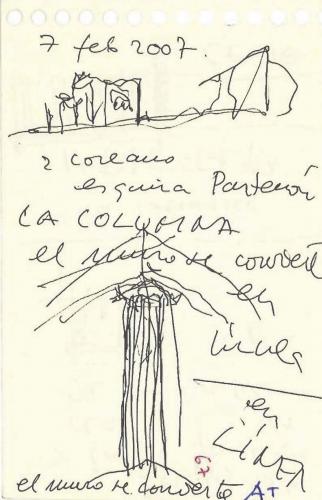 7 feb 2007.
2 coreano
esquina Partenón
LA COLUMNA
el muro se convierte
en
línea
en
LÍNEA
el muro se convierte AT